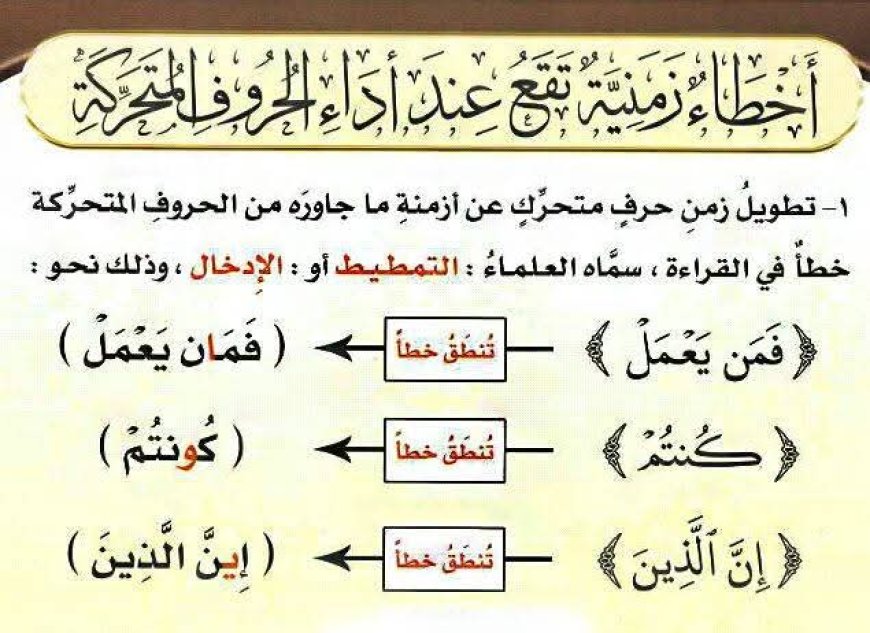 أَخْطَاءٌ زَمَنِيَّةٌ تَقَعُ عِندَ أَدَاءِ الحُرُوفِ المُتَحَرِّكَةِ
١- تطويلُ زمنِ حرفٍ متحرِّكٍ عن أزمنةِ ما جاورَه من الحروفِ المتحرِّكة
خطأٌ في القراءة ، سمَّاه العلماءُ : التمطيط أو : الإِدخال ، وذلك نحو :
﴿ فَمَن يَعْمَلْ ﴾ تُنطَقُ خطأً ( فَمَان يَعْمَلْ )
﴿ كُنتُمْ ﴾ تُنطَقُ خطأً ( كُونتُمْ )
﴿ إِنَّ ٱلَّذِينَ ﴾ تُنطَقُ خطأً ( إِينَّ الَّذِينَ )